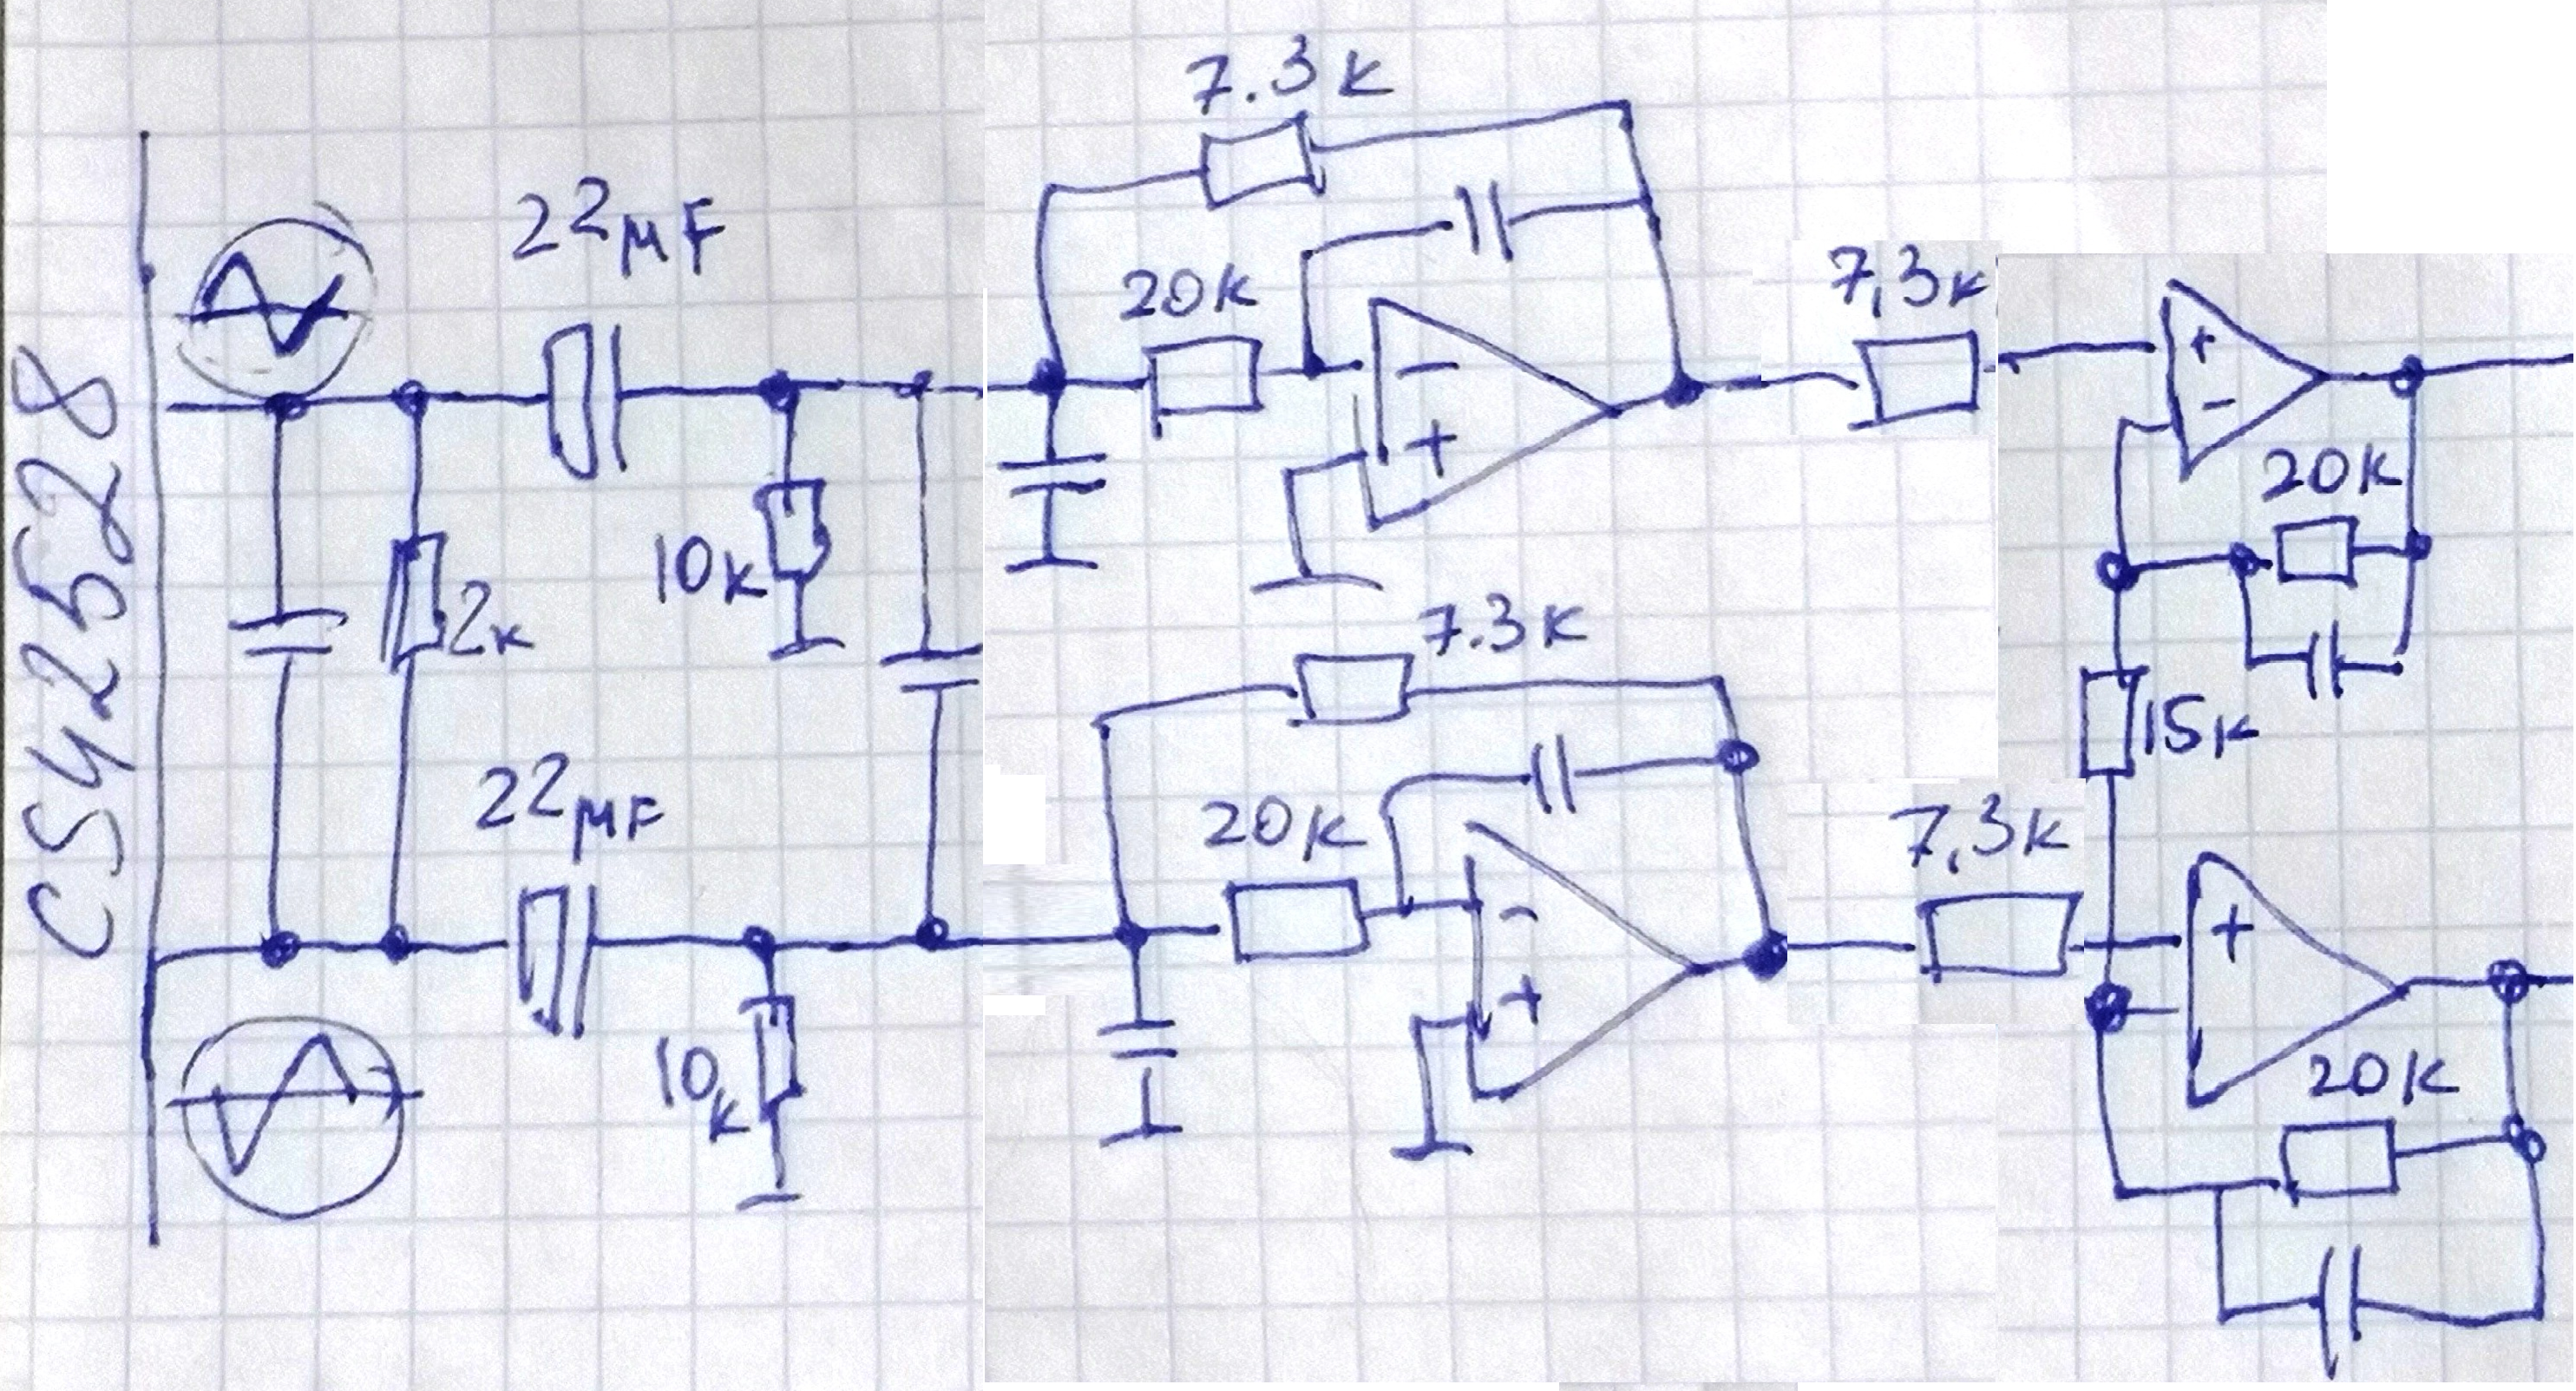 CS42528
22μF
10k
2k
22μF
10k
7.3k
20k
-
+
7.3k
20k
-
+
7,3k
7,3k
+
-
20k
15k
+
-
20k